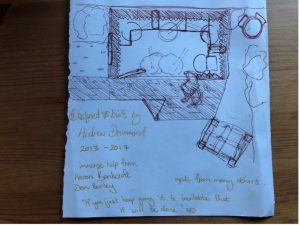 Designed & built by
Andrew Desmond
2013 - 2017
immense help from
Aaron
Dan
many others
"If you just keep going it is that
it will be done"